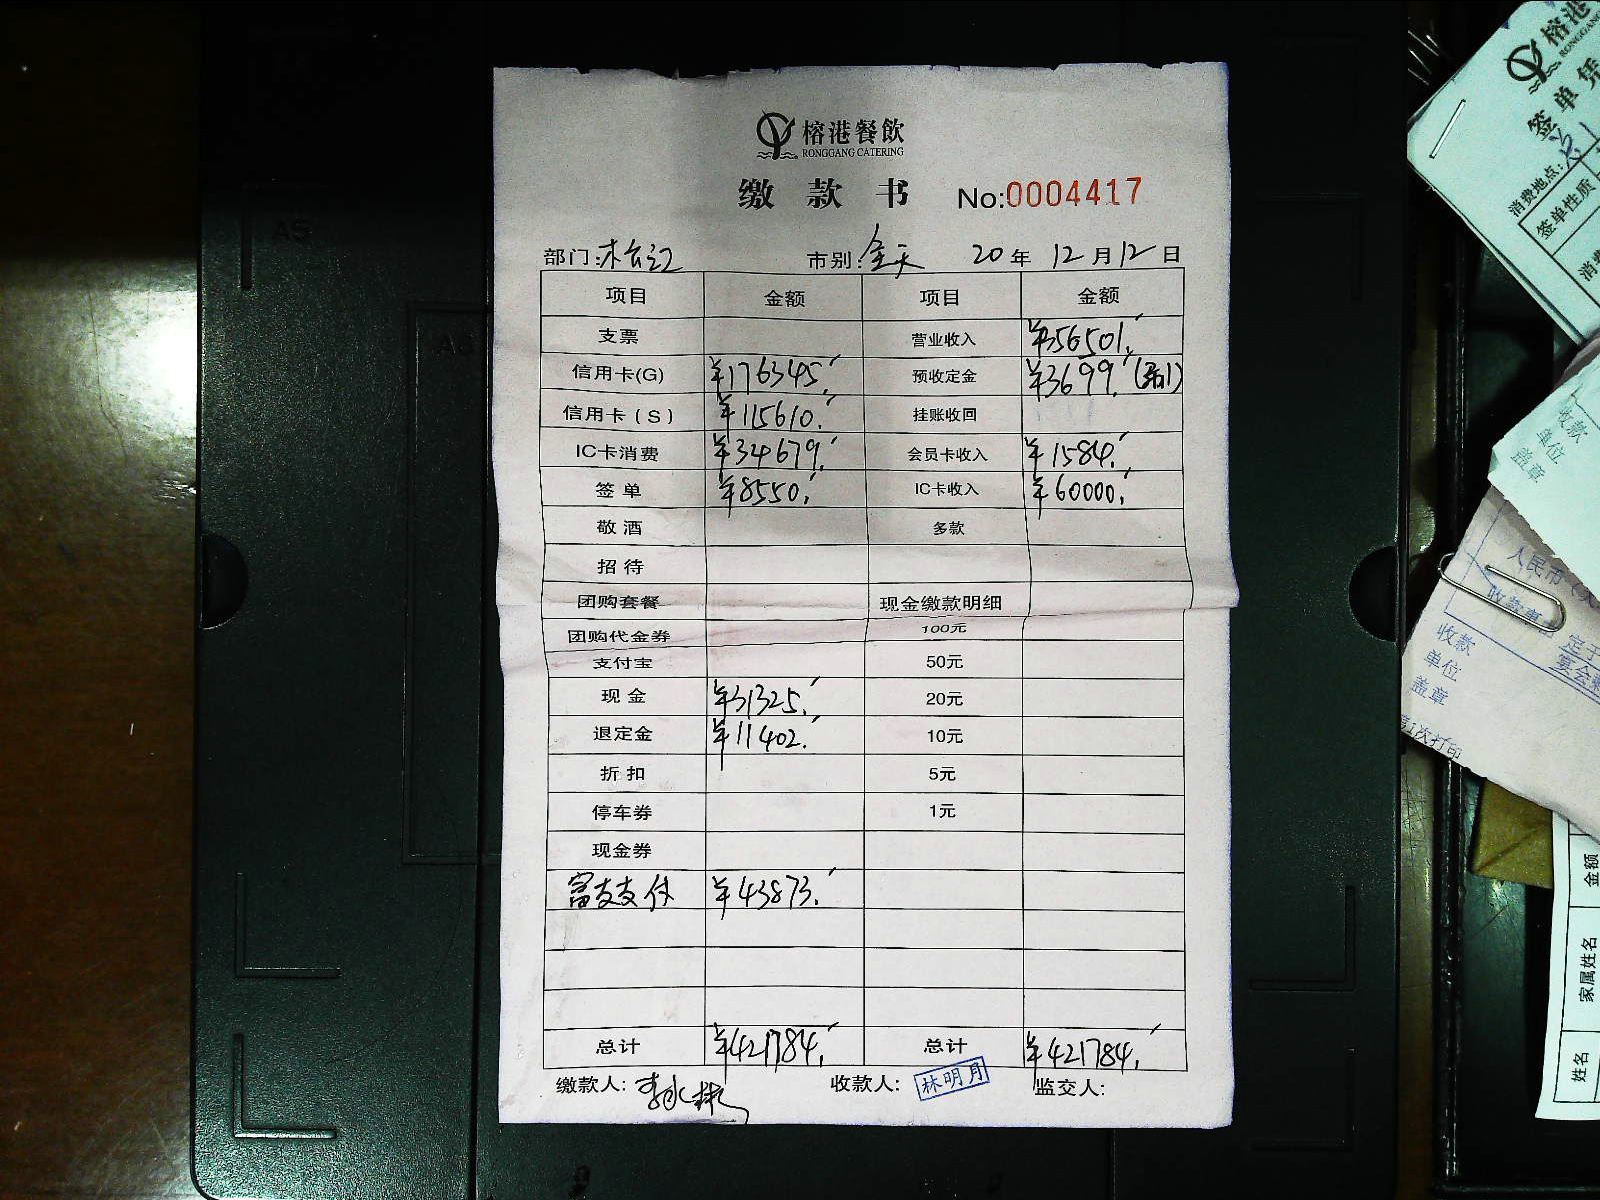 榕港餐飲
RONGGANG CATERING
缴款书 No:0004417
部门: 市别:全天 20年12月12日
项目 金额 项目 金额
支票 营业收入 ¥356501.
信用卡(G) ¥176345. 预收定金 ¥3699.
信用卡(S) ¥115610. 挂账收回
IC卡消费 ¥34679. 会员卡收入 ¥1584.
签单 ¥8550. IC卡收入 ¥60000.
敬酒 多款
招待
团购套餐 现金缴款明细
团购代金券 100元
支付宝 50元
现金 ¥31325. 20元
退定金 ¥11402. 10元
折扣 5元
停车券 1元
现金券
富友支付 ¥43873.
总计 ¥421784. 总计 ¥421784.
缴款人: 收款人: 林明月 监交人:
榕港
RONGGANG
签单凭
消费地点:
签单性质
消费
收款
单位
盖章
人民币
收款事
收款
单位
盖章
定于
宴会
次打印
金额
家属姓名
姓名